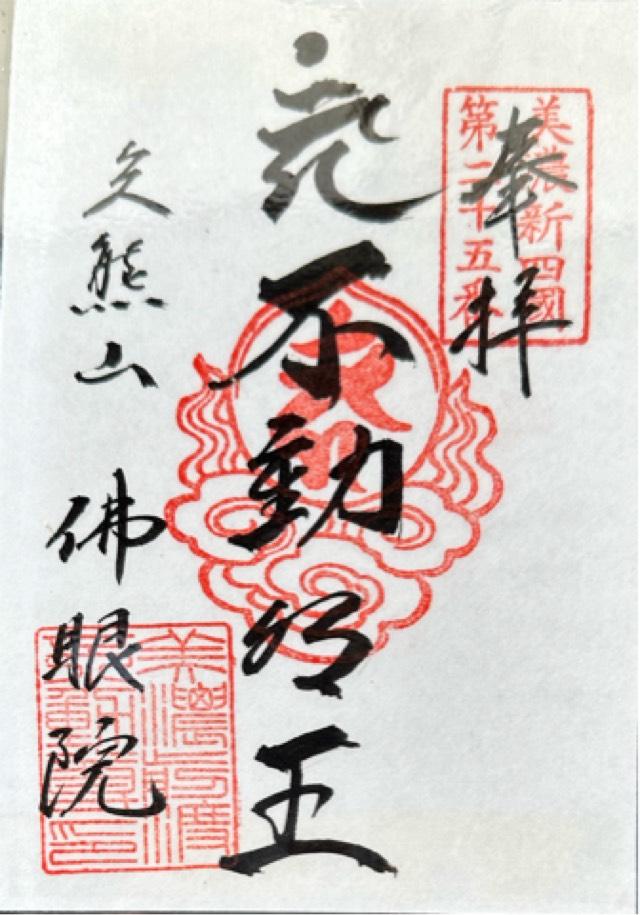 奉拝
美濃新四國
第二十五番
不動明王
久熊山 佛眼院